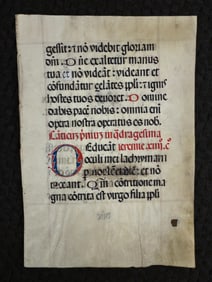 gessit: ⁊ nō videbit gloriam
dni. Dñe exaltetur manus
tua et nō videāt: videant et
cōfundātur zelātes ppli: ⁊ ignis
hostes tuos devoret. Domine
dabis pacē nobis: omnia eni
opera nostra operatus es nob.
Cāticus prīmus in q̄dragesima
Deducāt ieremie .xiiij. c°
oculi mei lachrymam
p. noctē et diē: et nō
taceant. Qm̄ cōtritione ma
gna cōtrita est virgo filia ppli